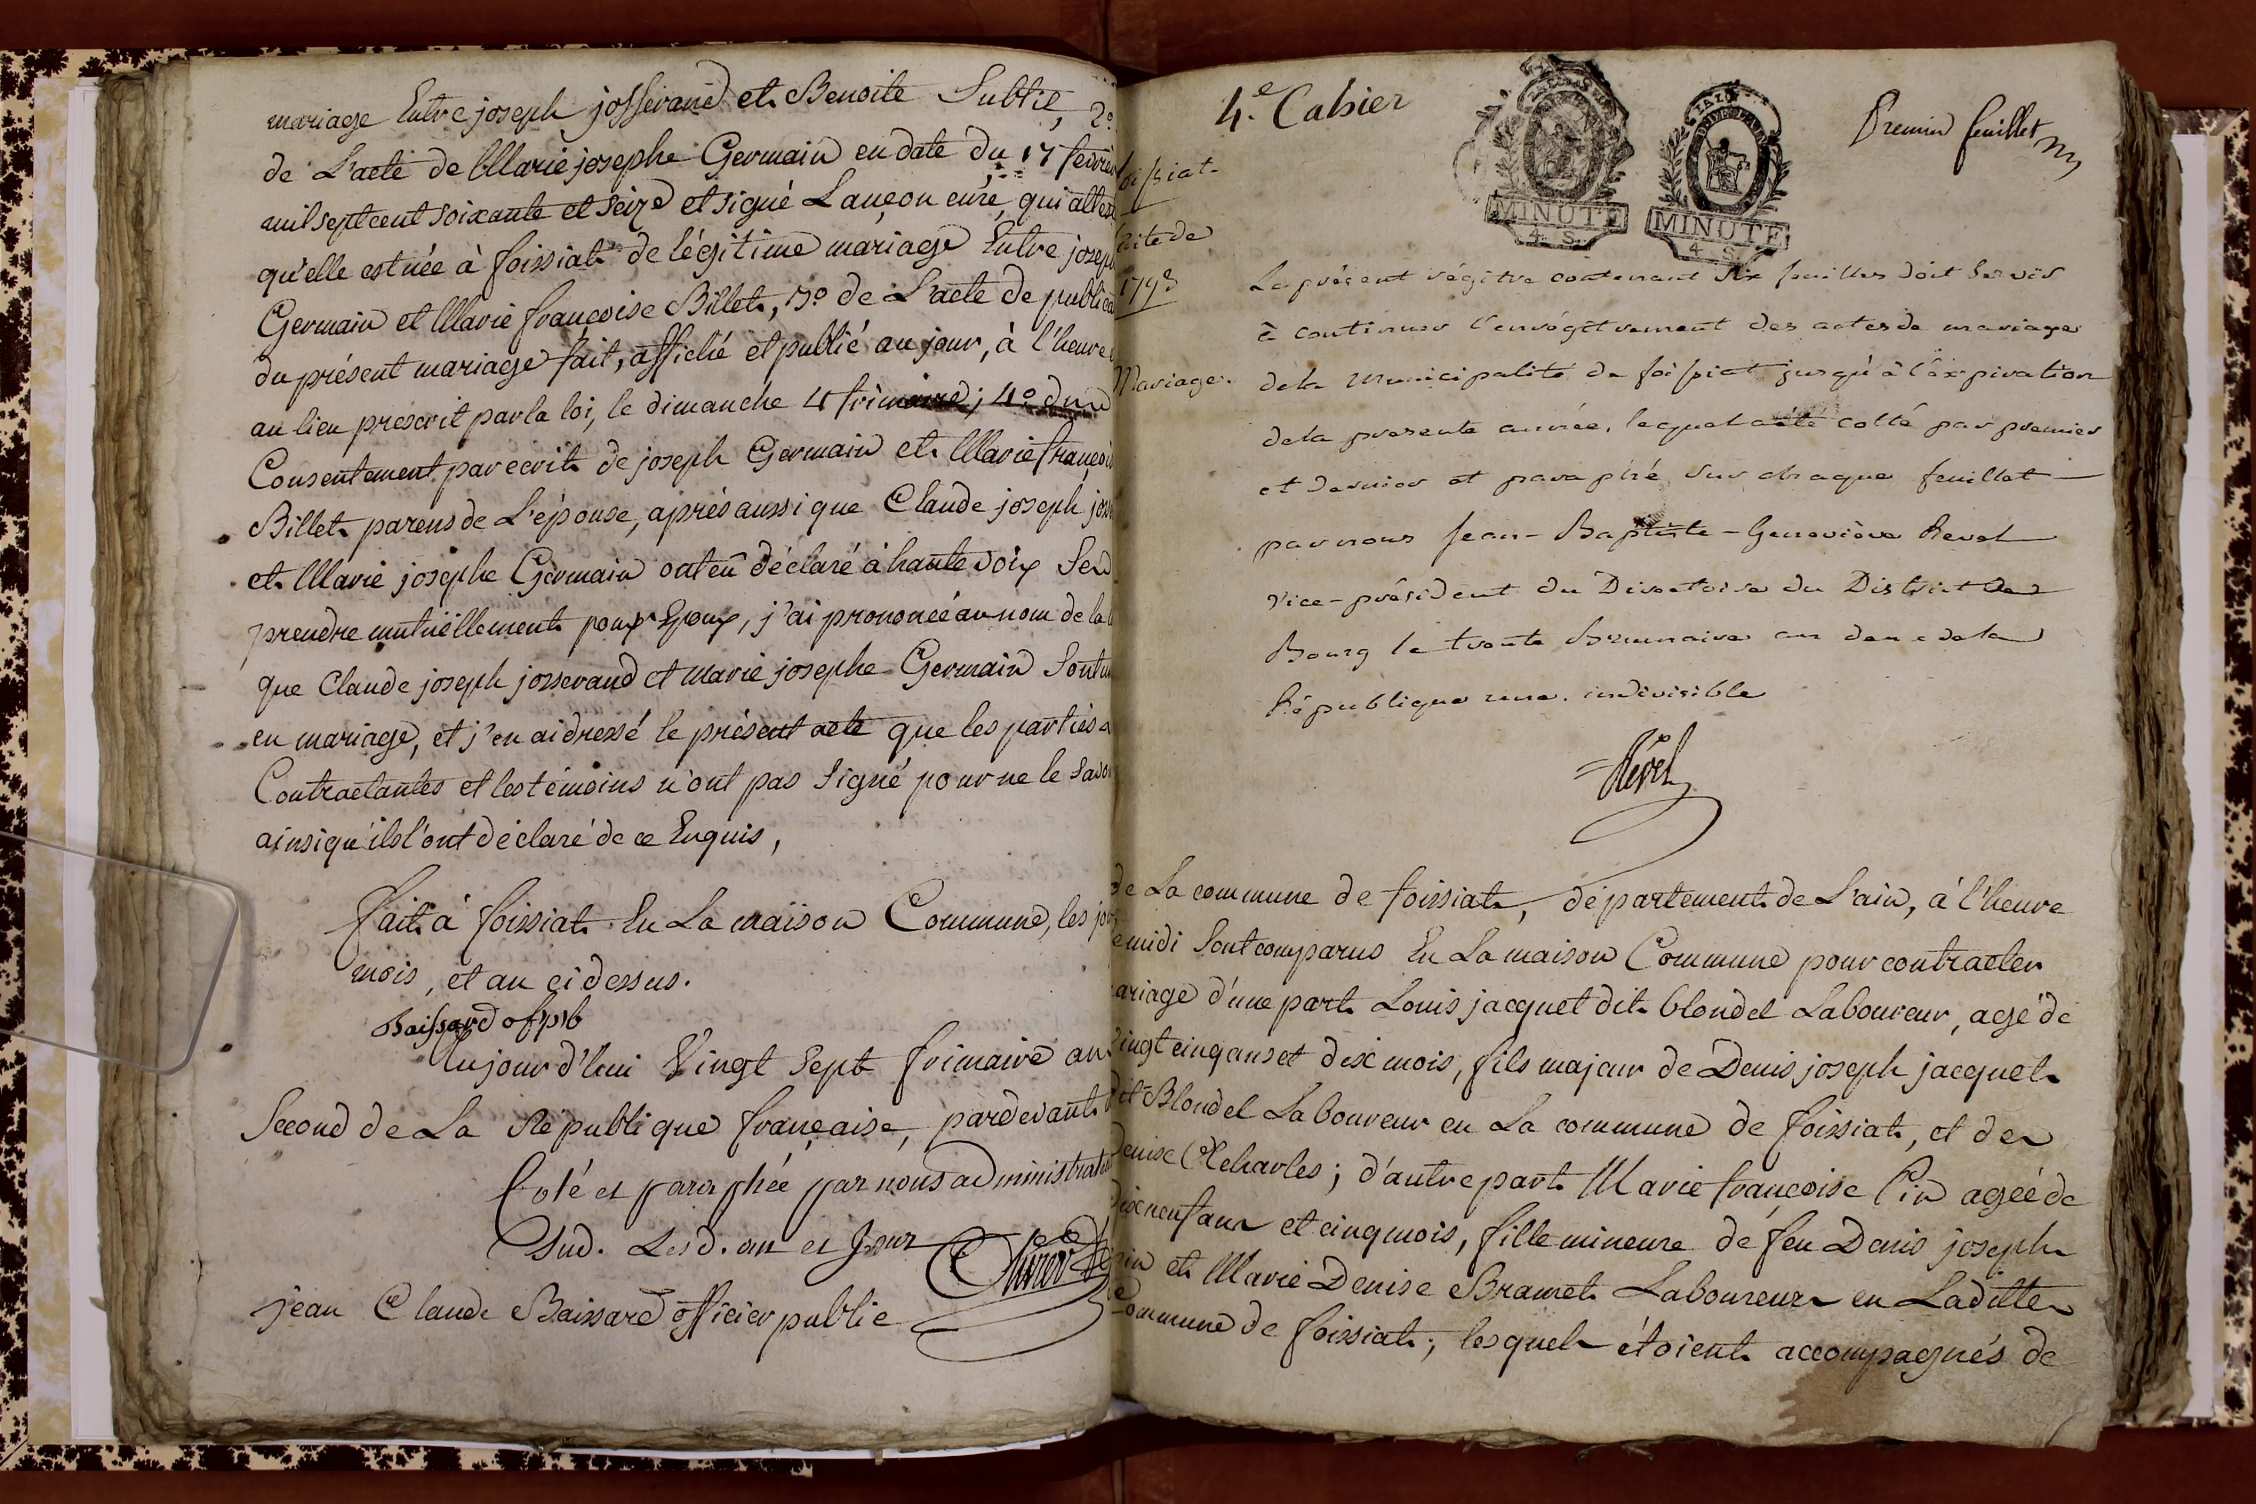 mariage Entre joseph josserand et Benoite Subtil, 2o
de L'acte de Marie josephe Germain en date du 17 fevrier
mil sept cent soixante et seize et signé Lançon curé, qui atteste
qu'elle est née à foissiat de légitime mariage Entre joseph
Germain et Marie françoise Billet, 3o de L'acte de publica
du présent mariage fait, affiché et publié au jour, à l'heure
au lieu préscrit par la loi, le dimanche 4 frimaire; 4o du
Consentement par ecrit de joseph Germain et Marie françoi
Billet parens de L'épouse, après aussi que Claude joseph joss
et Marie josephe Germain ont eû déclaré à haute voix Se
prendre mutüellement pour Epoux, j'ai prononcé au nom de la
que Claude joseph josserand et Marie josephe Germain Sont
en mariage, et j'en ai dressé le présent acte que les parties
Contractantes et les témoins n'ont pas signé pour ne le savoi
ainsi qu'ils l'ont déclaré de ce Enquis,
fait à foissiat En La maison Commune, les jou
mois, et an ci dessus.
Baissard of pb
Aujourd'hui Vingt Sept frimaire an
Second de La République française, pardevant
Coté et paraphée par nous administrateur
Sud. Les d. an et Jour Olivier
jean Claude Baissard officier public
4.e Cahier
Premier feuillet
MINUTE
4. S.
MINUTE
4. S.
foissiat
suite de
1793
Mariage.
Le présent régitre contenant Six feuilles doit Servir
à continuer l'enrégitrement des actes de mariage
de la Municipalité de foissiat jusqu'à l'expiration
de la presente année, lequel a été cotté par premier
et dernier et paraphé Sur chaque feuillet
par nous Jean-Baptiste-Geneviève Revel
vice-président du Directoire du District de
Bourg le trente Brumaire an deux de la
République une. indivisible
Révél
de La commune de foissiat, département de L'ain, à l'heure
midi Sont comparus En La maison Commune pour contracter
mariage d'une part Louis jacquet dit blondel Laboureur, agé de
Vingt cinq ans et dix mois, fils majeur de Denis joseph jacquet
dit Blondel Laboureur en La commune de foissiat, et de
Denise Charles; d'autre part Marie françoise Pin agée de
dix neuf ans et cinq mois, fille mineure de feu Denis joseph
Pin et Marie Denise Bramet Laboureurs en La ditte
Commune de foissiat; lesquels étoient accompagnés de